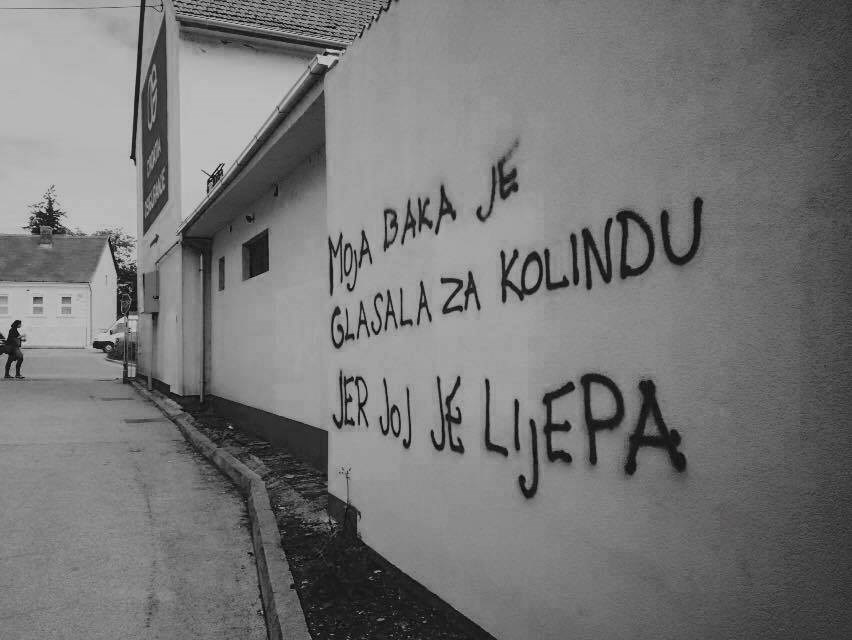 CROATIA
OSIGURANJE
MOJA BAKA JE
GLASALA ZA KOLINDU
JER JOJ JE LIJEPA